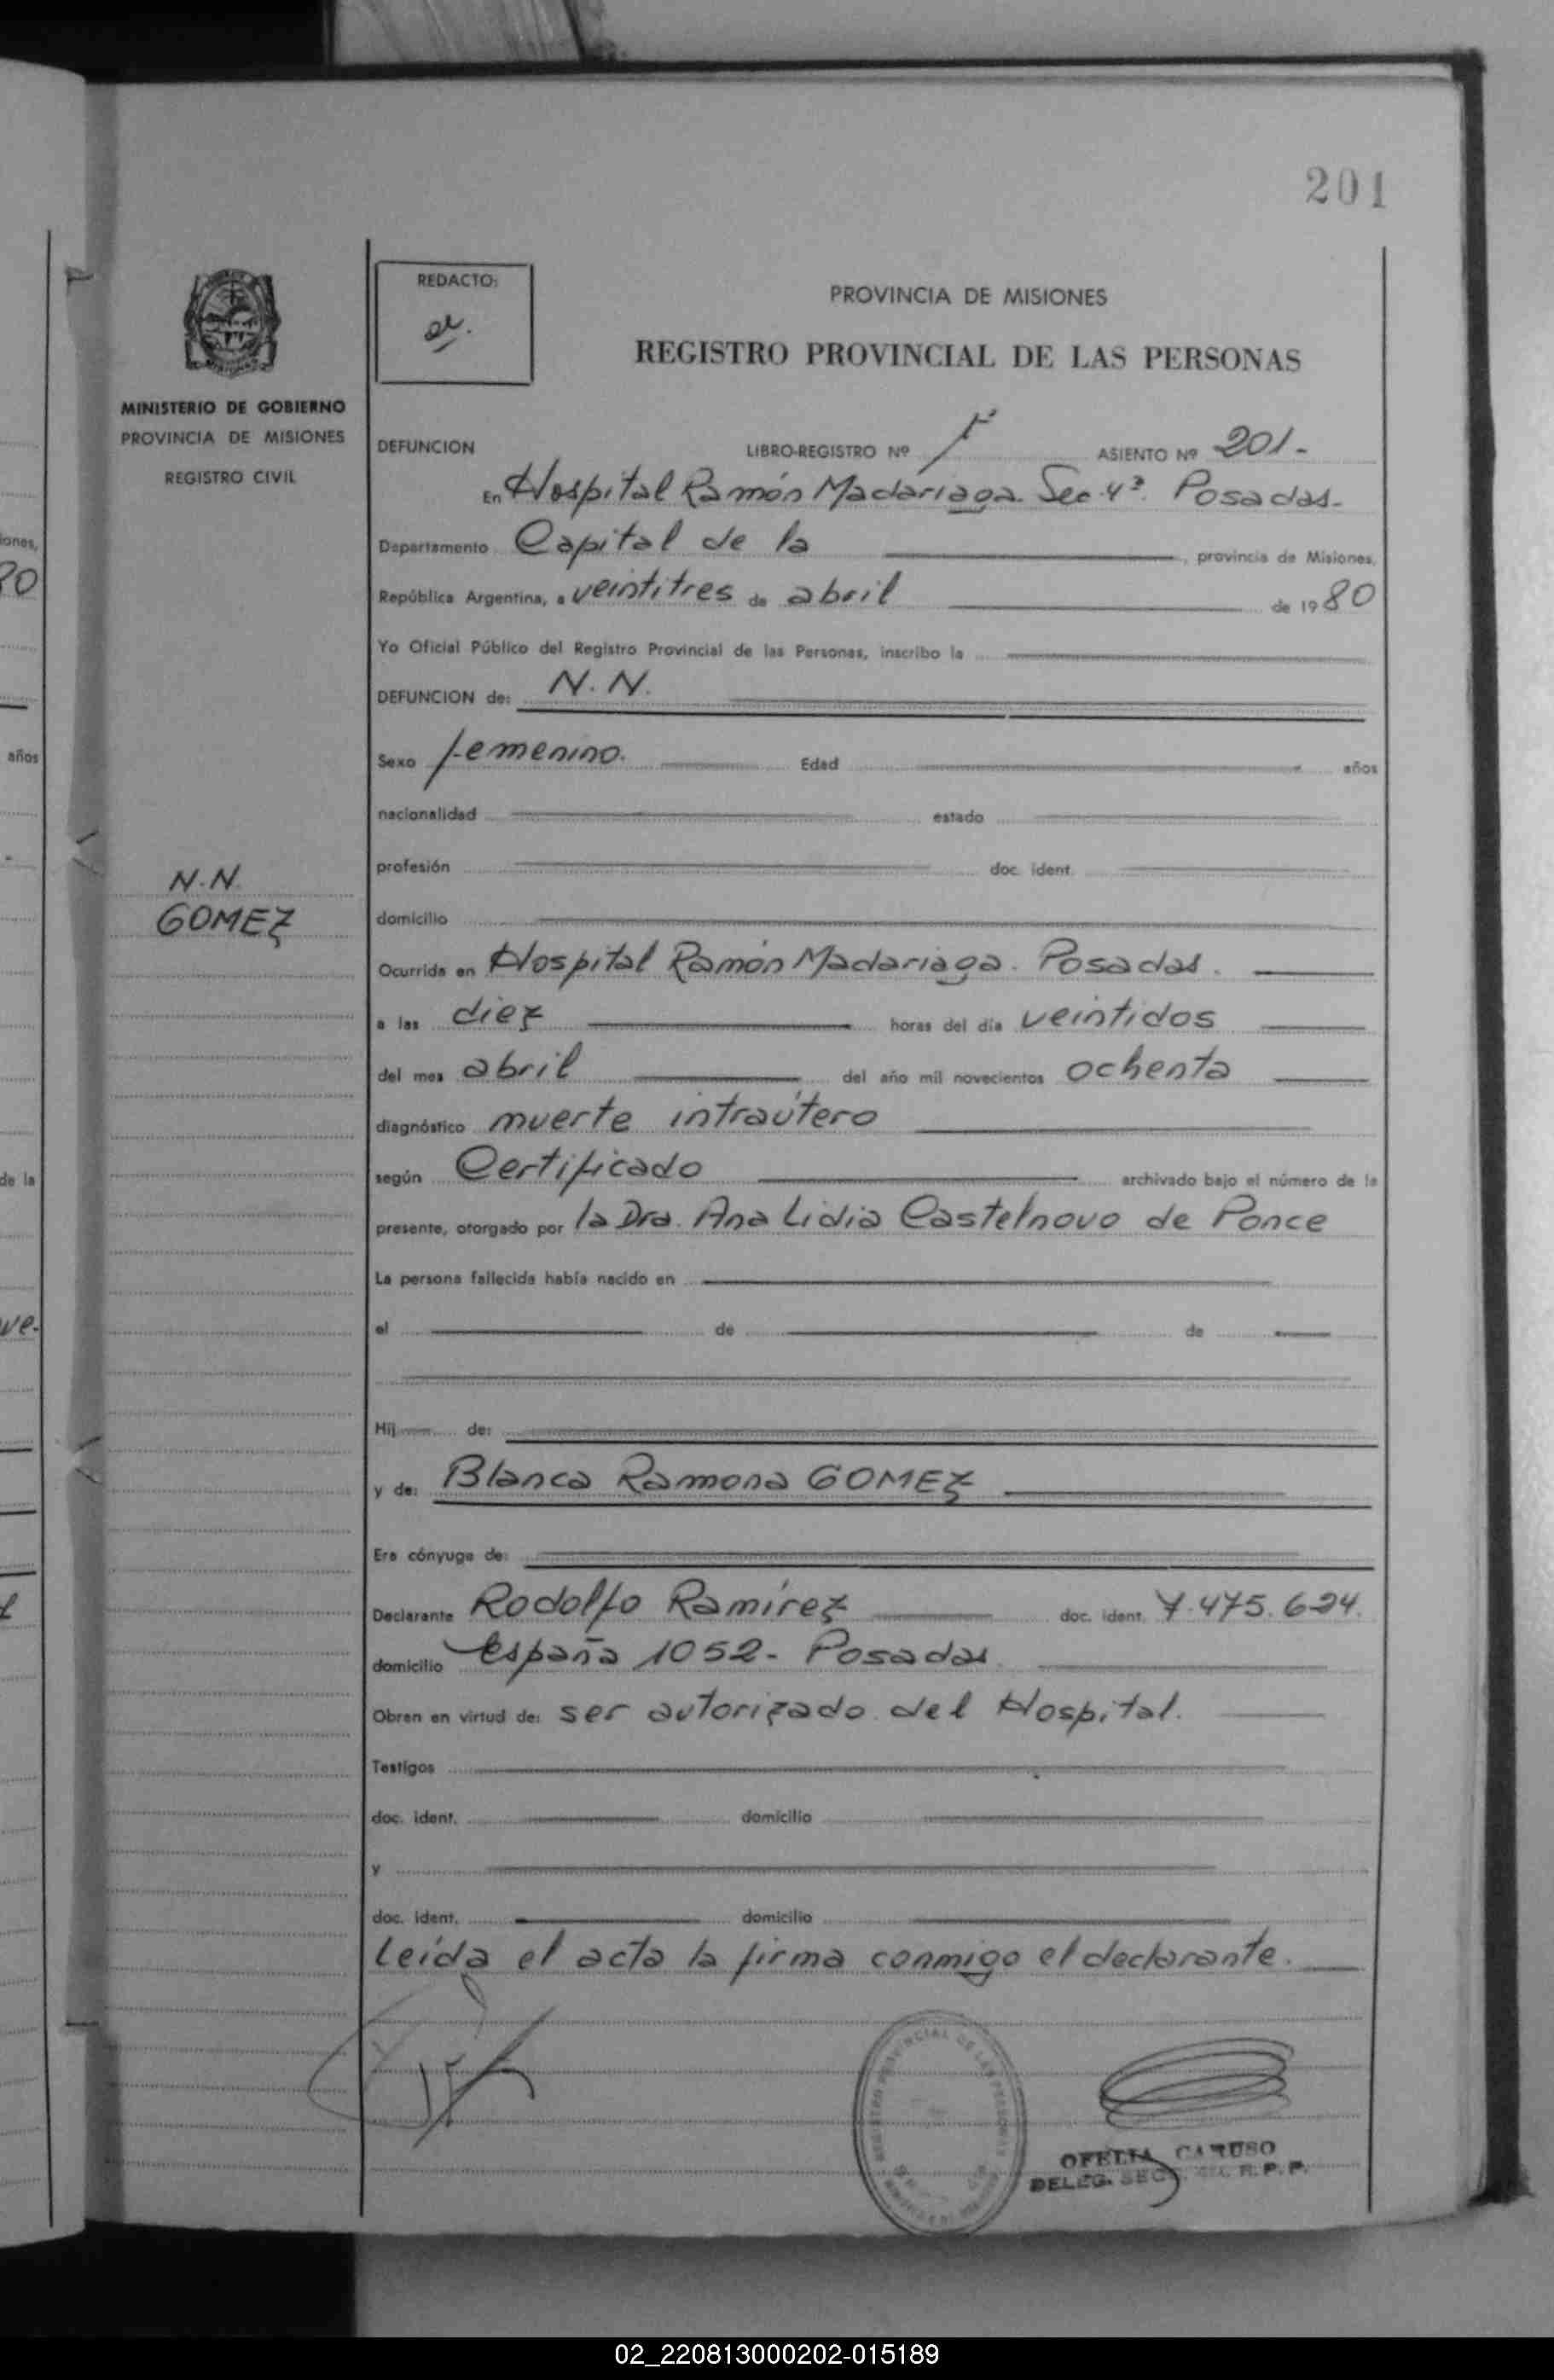 201
MINISTERIO DE GOBIERNO
PROVINCIA DE MISIONES
REGISTRO CIVIL
N.N.
GOMEZ
REDACTO:
PROVINCIA DE MISIONES
REGISTRO PROVINCIAL DE LAS PERSONAS
DEFUNCION LIBRO-REGISTRO Nº ASIENTO Nº 201-
En Hospital Ramón Madariaga. Sec. 4ª. Posadas-
Departamento Capital de la , provincia de Misiones,
República Argentina, a veintitres de abril de 1980
Yo Oficial Público del Registro Provincial de las Personas, inscribo la
DEFUNCION de: N. N.
Sexo femenino. Edad años
nacionalidad estado
profesión doc. ident.
domicilio
Ocurrida en Hospital Ramón Madariaga. Posadas.
a las diez horas del día veintidos
del mes abril del año mil novecientos ochenta
diagnóstico muerte intraútero
según Certificado archivado bajo el número de la
presente, otorgado por la Dra. Ana Lidia Castelnovo de Ponce
La persona fallecida había nacido en
el de de
Hij de:
y de: Blanca Ramona GOMEZ
Era cónyuge de:
Declarante Rodolfo Ramírez doc. ident. 7.475.624.
domicilio España 1052- Posadas
Obran en virtud de: ser autorizado del Hospital.
Testigos
doc. ident. domicilio
y
doc. ident. domicilio
Leída el acta la firma conmigo el declarante.
OFELIA CARUSO
DELEG. SECC. R.P.P.
02_220813000202-015189